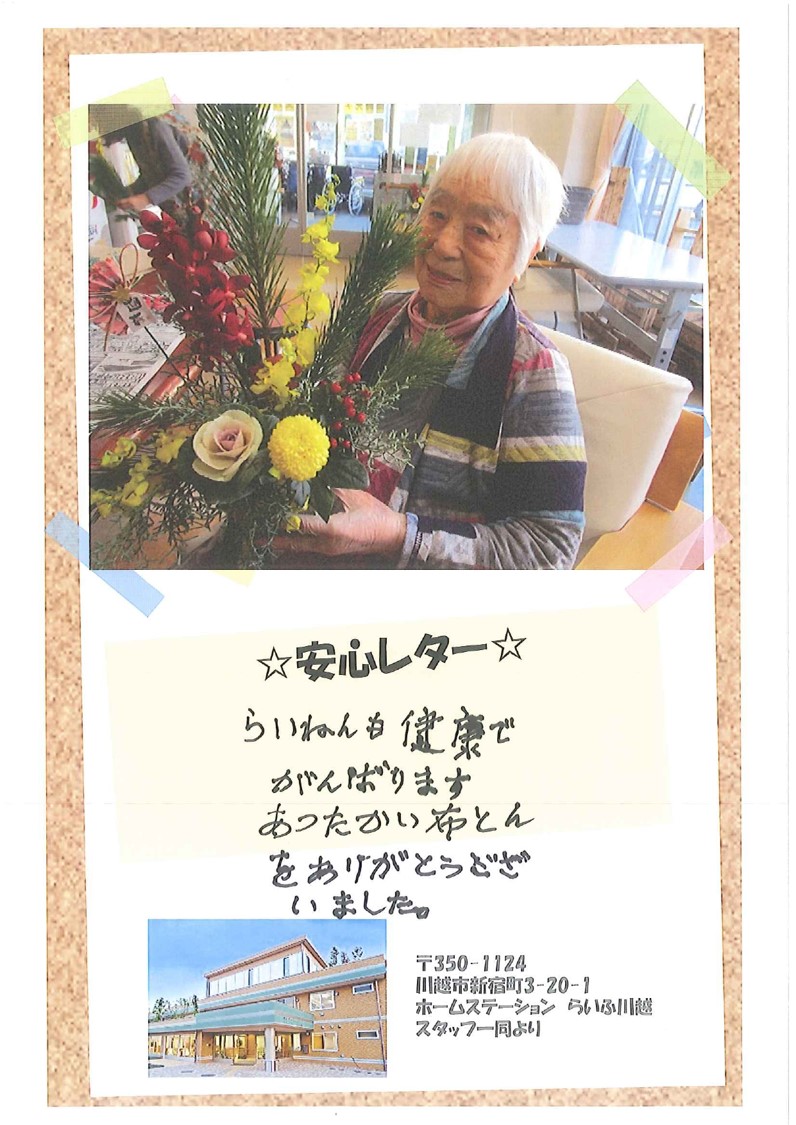 ☆安心レター☆
らいねんも健康で
がんばります
あったかい布とん
をありがとうござ
いました。
〒350-1124
川越市新宿町3-20-1
ホームステーション らいふ川越
スタッフ一同より